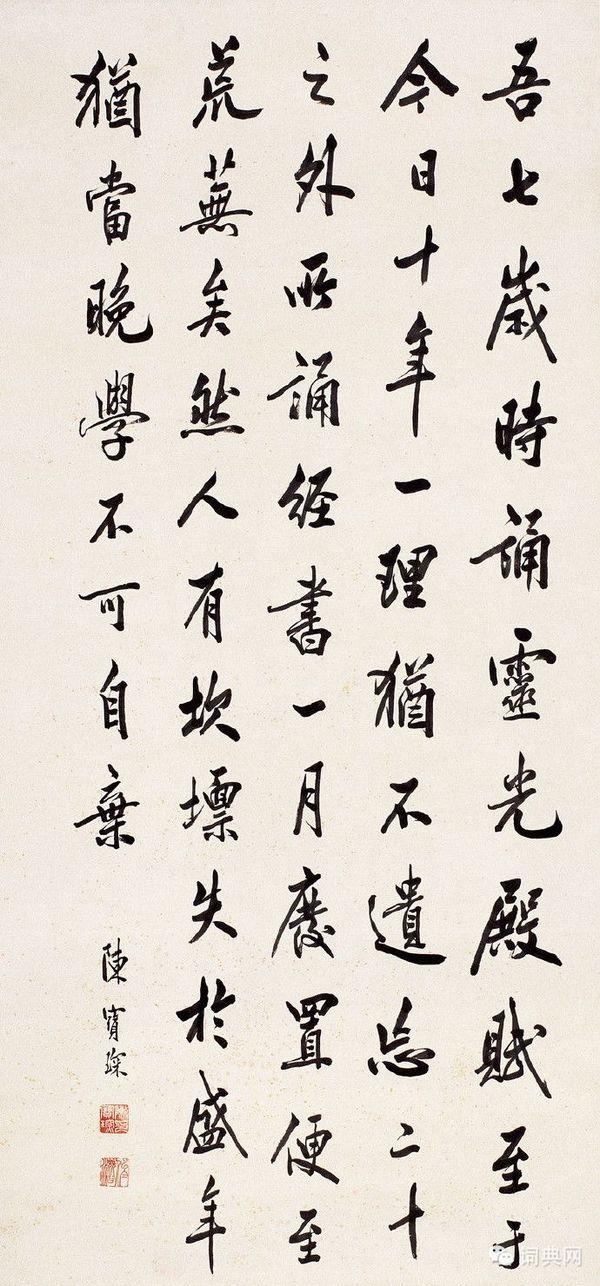 吾七歲時誦靈光殿賦至于
今日十年一理猶不遺忘二十
之外所誦經書一月廢置便至
荒蕪矣然人有坎壈失於盛年
猶當晚學不可自棄
陳寶琛
词典网